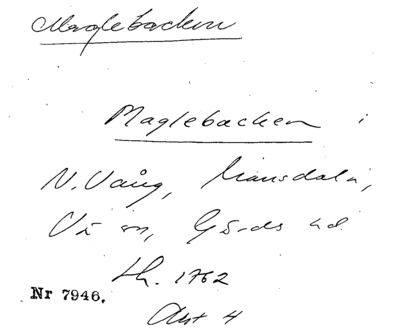 Maglebacken
Maglebacken i
N. Vång,
Vä sn, Gärds hd.
Lh. 1762
Akt 4
Nr 7946.